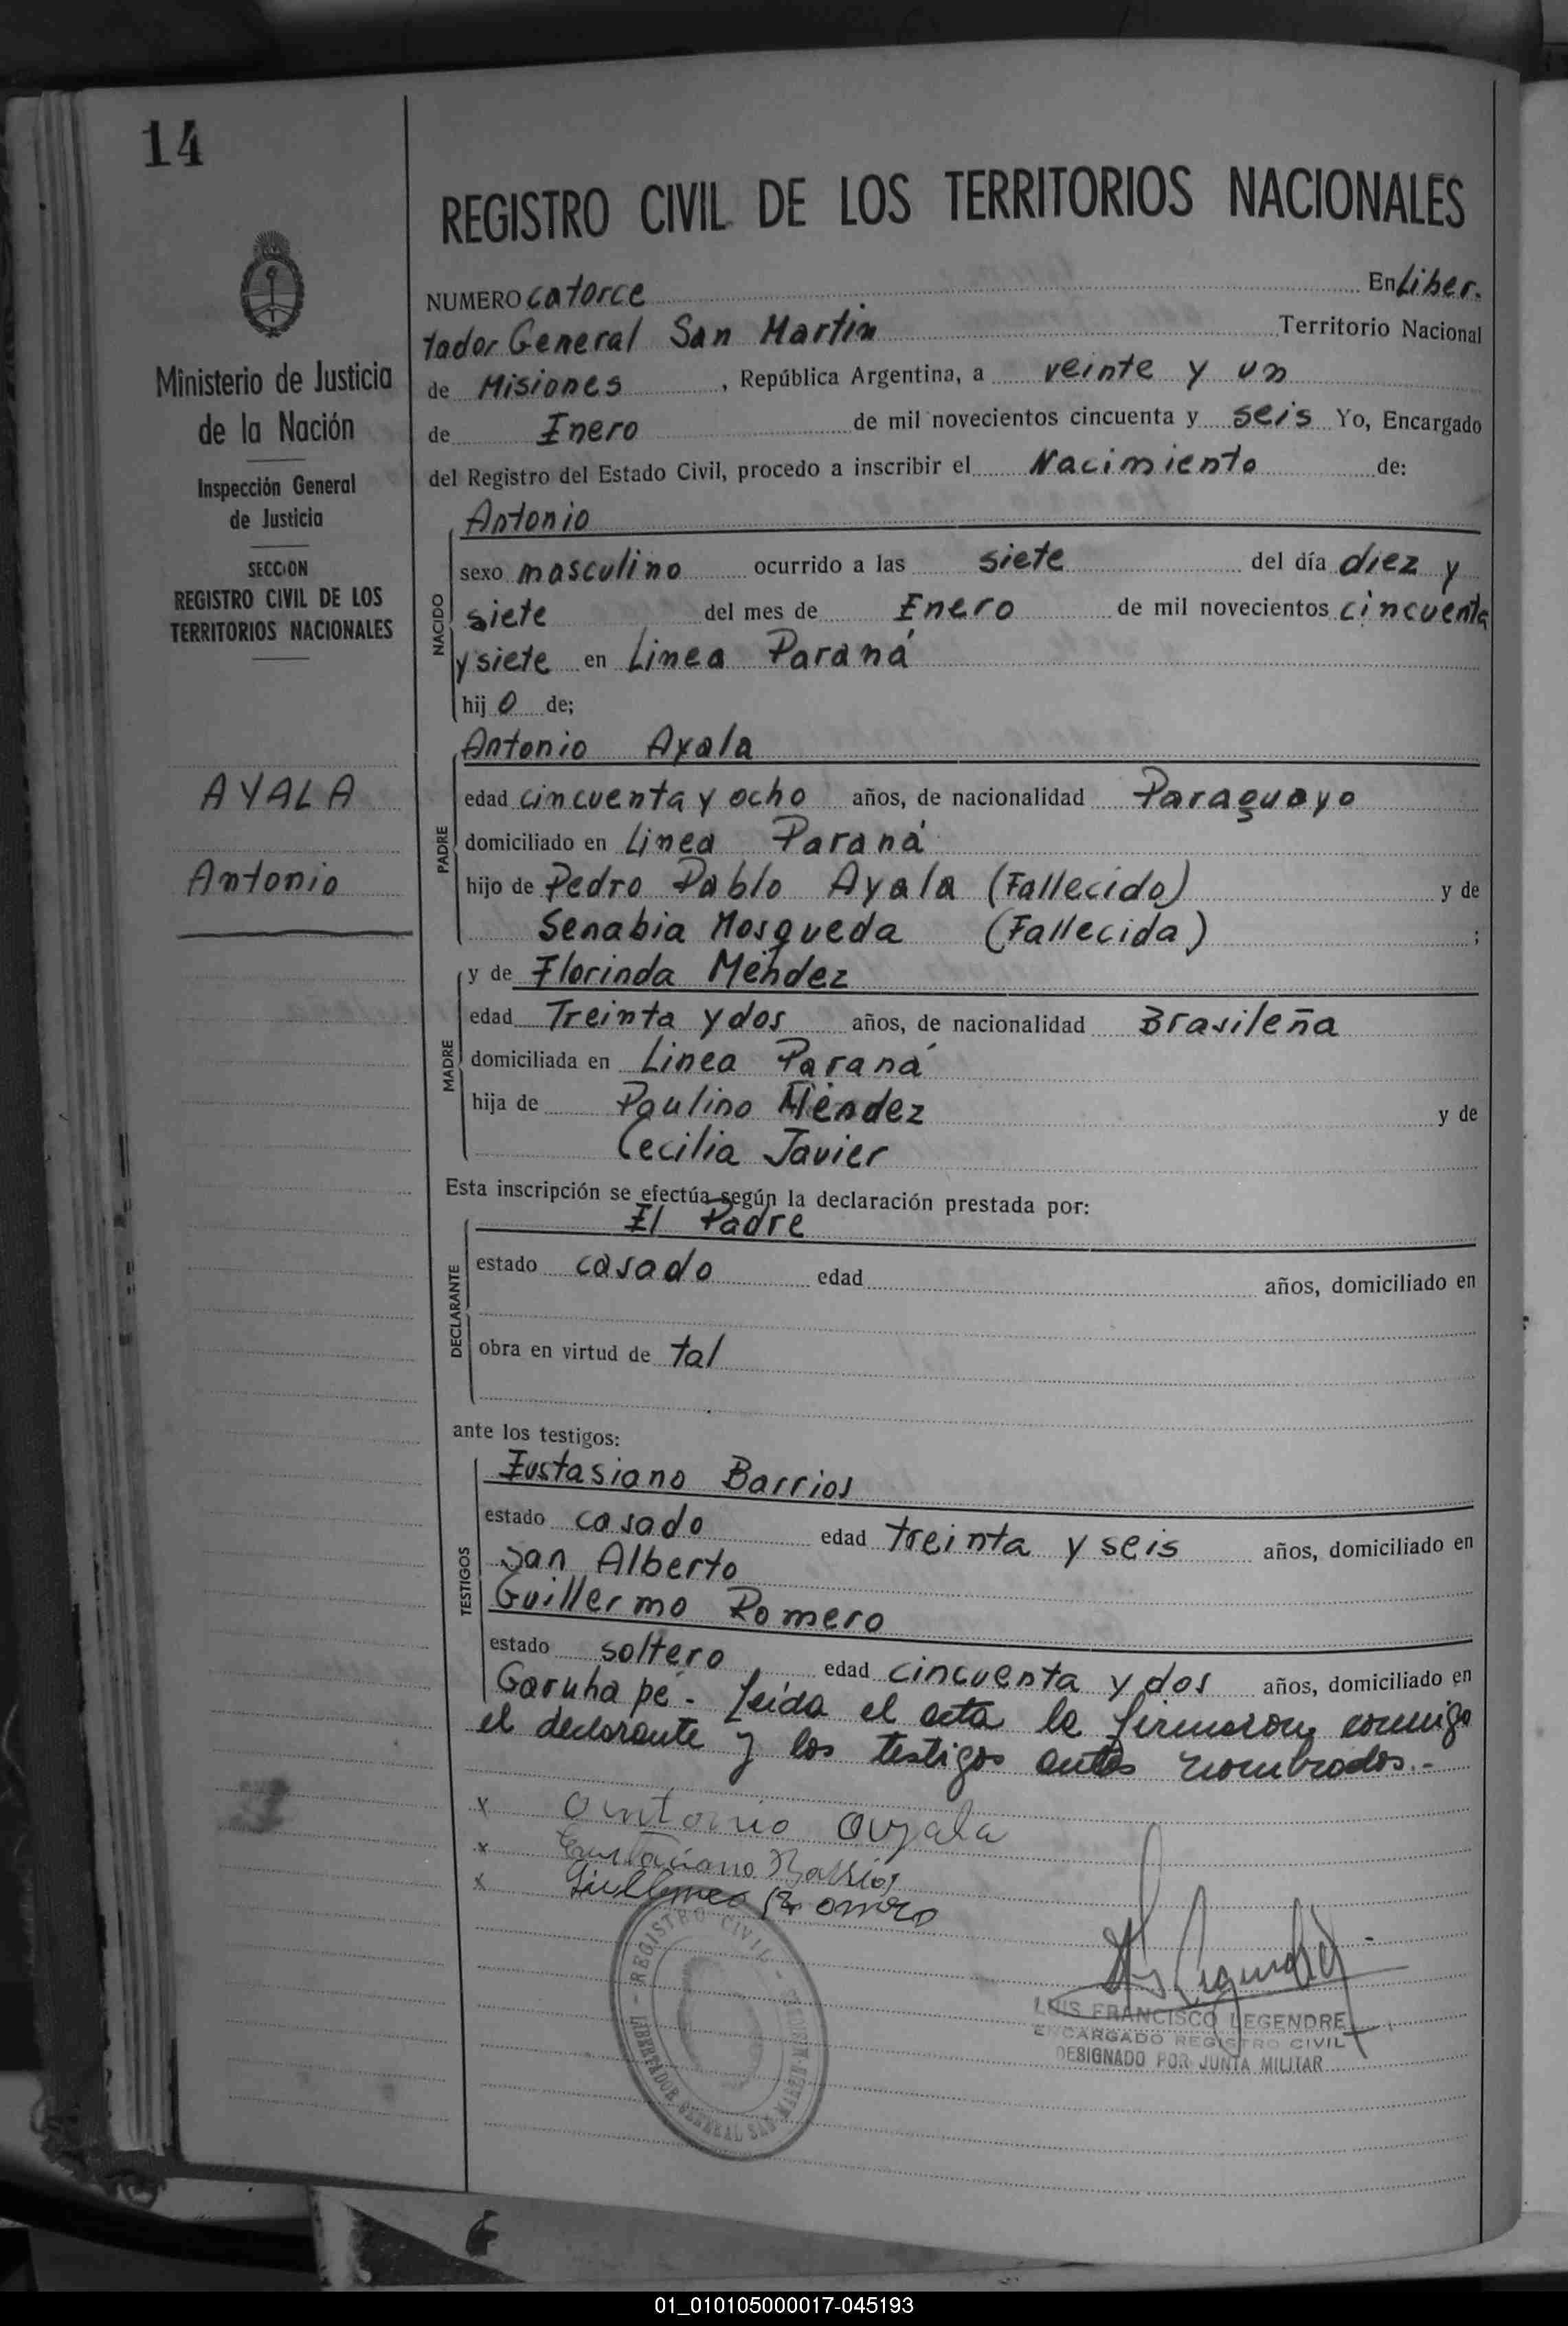 14
REGISTRO CIVIL DE LOS TERRITORIOS NACIONALES
Ministerio de Justicia
de la Nación
Inspección General
de Justicia
SECCION
REGISTRO CIVIL DE LOS
TERRITORIOS NACIONALES
AYALA
Antonio
NUMERO catorce En Liber.
tador General San Martin Territorio Nacional
de Misiones, República Argentina, a veinte y un
de Enero de mil novecientos cincuenta y seis Yo, Encargado
del Registro del Estado Civil, procedo a inscribir el Nacimiento de:
Antonio
NACIDO
sexo masculino ocurrido a las siete del día diez y
siete del mes de Enero de mil novecientos cincuenta
y siete en Linea Paraná
hij o de;
Antonio Ayala
PADRE
edad cincuenta y ocho años, de nacionalidad Paraguayo
domiciliado en Linea Paraná
hijo de Pedro Pablo Ayala (Fallecido) y de
Senabia Mosqueda (Fallecida) ;
y de Florinda Méndez
MADRE
edad Treinta y dos años, de nacionalidad Brasileña
domiciliada en Linea Paraná
hija de Paulino Méndez y de
Cecilia Javier
Esta inscripción se efectúa según la declaración prestada por:
El Padre
DECLARANTE
estado casado edad años, domiciliado en
obra en virtud de tal
ante los testigos:
Eustasiano Barrios
TESTIGOS
estado casado edad treinta y seis años, domiciliado en
San Alberto
Guillermo Romero
estado soltero edad cincuenta y dos años, domiciliado en
Garuha pé - Leida el acta la firmaron conmigo
el declarante y los testigos antes nombrados.-
x Antonio Ayala
x Eustaciano Barrios
x Guillermo Romero
REGISTRO CIVIL
LIBERTADOR GENERAL SAN MARTIN
LUIS FRANCISCO LEGENDRE
ENCARGADO REGISTRO CIVIL
DESIGNADO POR JUNTA MILITAR
01_010105000017-045193